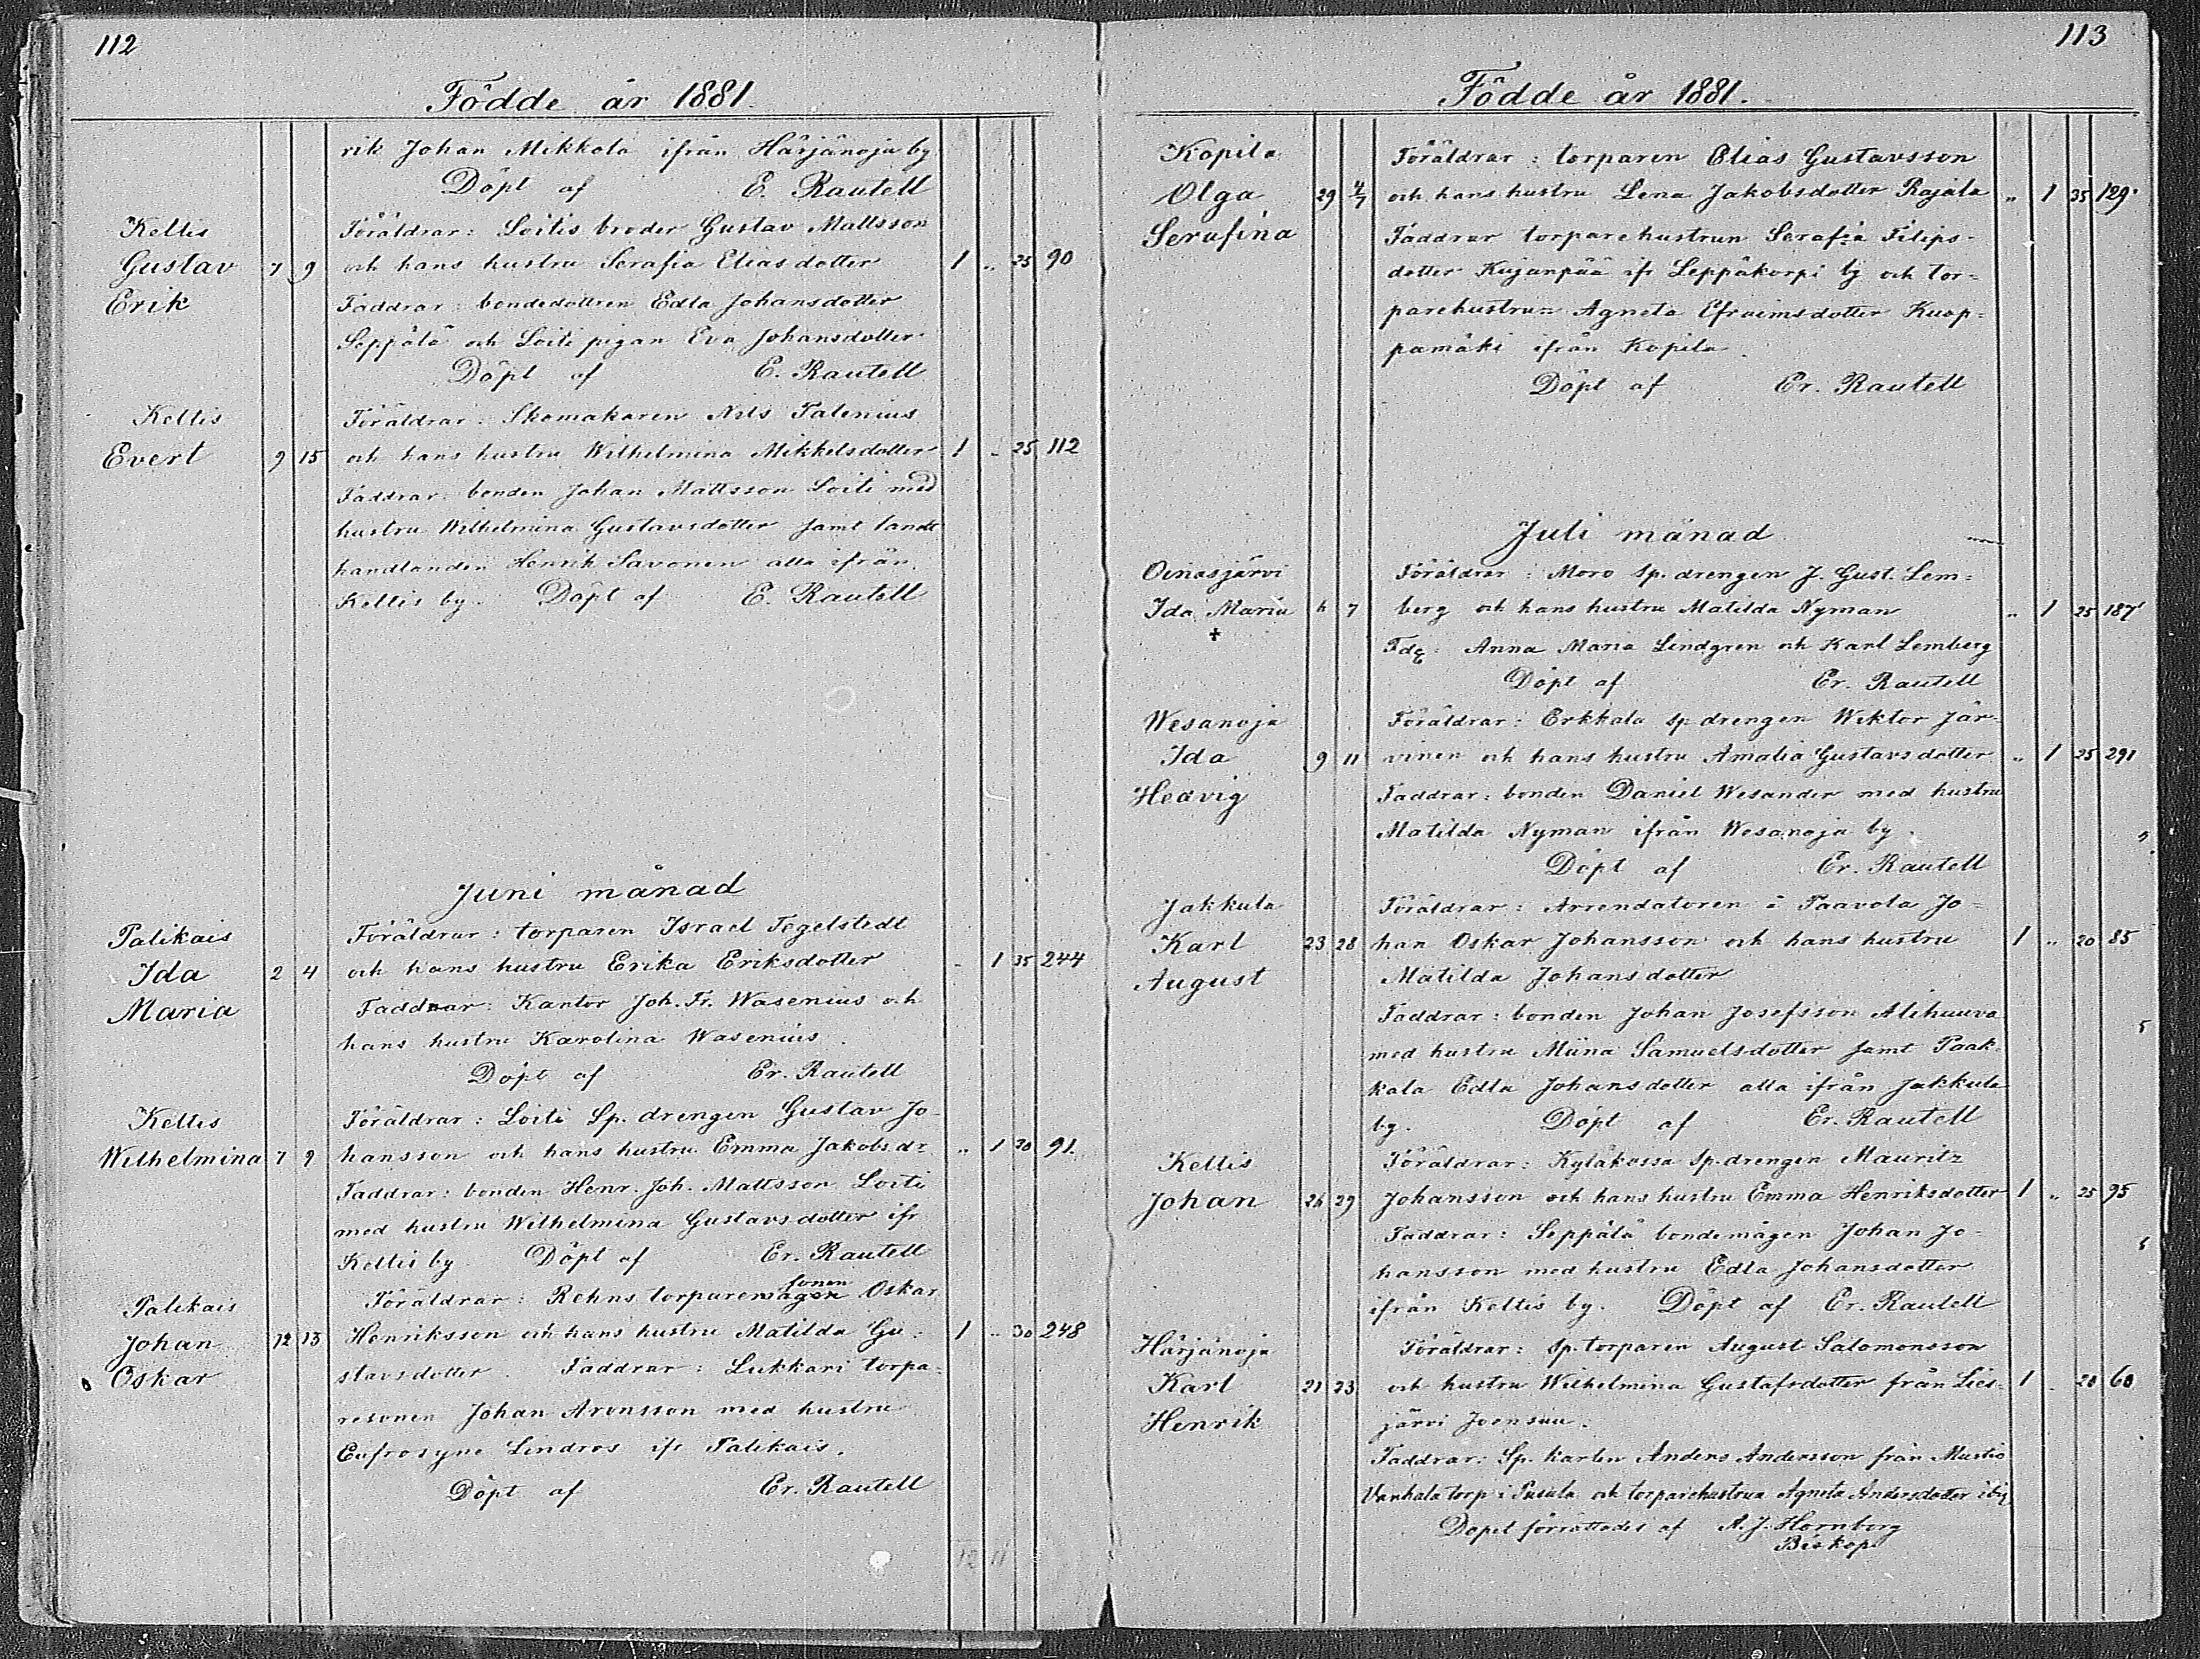 112
Födde år 1881.
rik Johan Mikkola ifrån Härjänoja by
Döpt af E. Rautell
Keltis Föräldrar: Loitis broder Gustav Mattsson
Gustav 7 9 och hans hustru Serafia Eliasdotter 1 „ 25 90
Erik Faddrar: bondedottren Edla Johansdotter
Seppälä och Loiti pigan Eva Johansdotter
Döpt af E. Rautell
Keltis Föräldrar: Skomakaren Nils Palenius
Evert 9 15 och hans hustru Wilhelmina Mikkelsdotter 1 „ 25 112
Faddrar: bonden Johan Mattsson Loiti med
hustru Wilhelmina Gustavsdotter samt landt
handlanden Henrik Savonen alla ifrån
Keltis by. Döpt af E. Rautell
Juni månad
Palikais Föräldrar: torparen Israel Tegelstedt
Ida 2 4 och hans hustru Erika Eriksdotter „ 1 35 244
Maria Faddrar: Kantor Joh. Fr. Wasenius och
hans hustru Karolina Wasenius.
Döpt af Er. Rautell
Keltis Föräldrar: Loiti Sp. drengen Gustav Jo-
Wilhelmina 7 9 hansson och hans hustru Emma Jakobsdr „ 1 20 91
Faddrar: bonden Henr. Joh. Mattsson Loiti
med hustru Wilhelmina Gustavsdotter ifr
Keltis by Döpt af Er. Rautell
sonen
Palikais Föräldrar: Rehns torparemågen Oskar
Johan 12 13 Henriksson och hans hustru Matilda Gu- 1 „ 30 248
Oskar stavsdotter. Faddrar: Lukkari torpa-
resonen Johan Aronsson med hustru
Eufrosyne Lindros ifr Palikais.
Döpt af Er. Rautell
113
Födde år 1881.
Kopila Föräldrar: torparen Elias Gustavsson
Olga 29 4/7 och hans hustru Lena Jakobsdotter Rajala „ 1 35 129
Serafina Faddrar torparehustrun Serafia Filips-
dotter Kujanpää ifr Leppäkorpi by och tor-
parehustrun Agneta Efraimsdotter Kuop-
pamäki ifrån Kopila.
Döpt af Er. Rautell
Juli månad
Oinasjärvi Föräldrar: Moro sp. drengen J. Gust. Lem-
Ida Maria 6 7 berg och hans hustru Matilda Nyman „ 1 25 187
† Fdr: Anna Maria Lindgren och Karl Lemberg
Döpt af Er. Rautell
Wesanoja Föräldrar: Erkkala sp drengen Wiktor Jär-
Ida 9 11 vinen och hans hustru Amalia Gustavsdotter „ 1 25 291
Hedvig Faddrar: bonden Daniel Wesander med hustru
Matilda Nyman ifrån Wesanoja by.
Döpt af Er. Rautell
Jakkula Föräldrar: Arrendatoren i Paavola Jo-
Karl 23 28 han Oskar Johansson och hans hustru 1 „ 20 85
August Matilda Johansdotter
Faddrar: bonden Johan Josefsson Alihuuva
med hustru Miina Samuelsdotter samt Paak-
kala Edla Johansdotter alla ifrån Jakkula
by. Döpt af Er. Rautell
Keltis Föräldrar: Kyläkossa sp. drengen Mauritz
Johan 26 29 Johansson och hans hustru Emma Henriksdotter 1 „ 25 95
Faddrar: Seppälä bondemågen Johan Jo-
hansson med hustru Edla Johansdotter
ifrån Keltis by. Döpt af Er. Rautell
Härjänoja Föräldrar: sp. torparen August Salomonsson
Karl 21 23 och hustru Wilhelmina Gustafsdotter från Lies- 1 „ 20 60
Henrik järvi Joensuu.
Faddrar: Sp. karlen Anders Andersson från Mustio
Vanhala torp i Pusula och torparehustrun Agneta Andersdotter iby
Dopet förrättades af A. J. Hornborg
Biskop